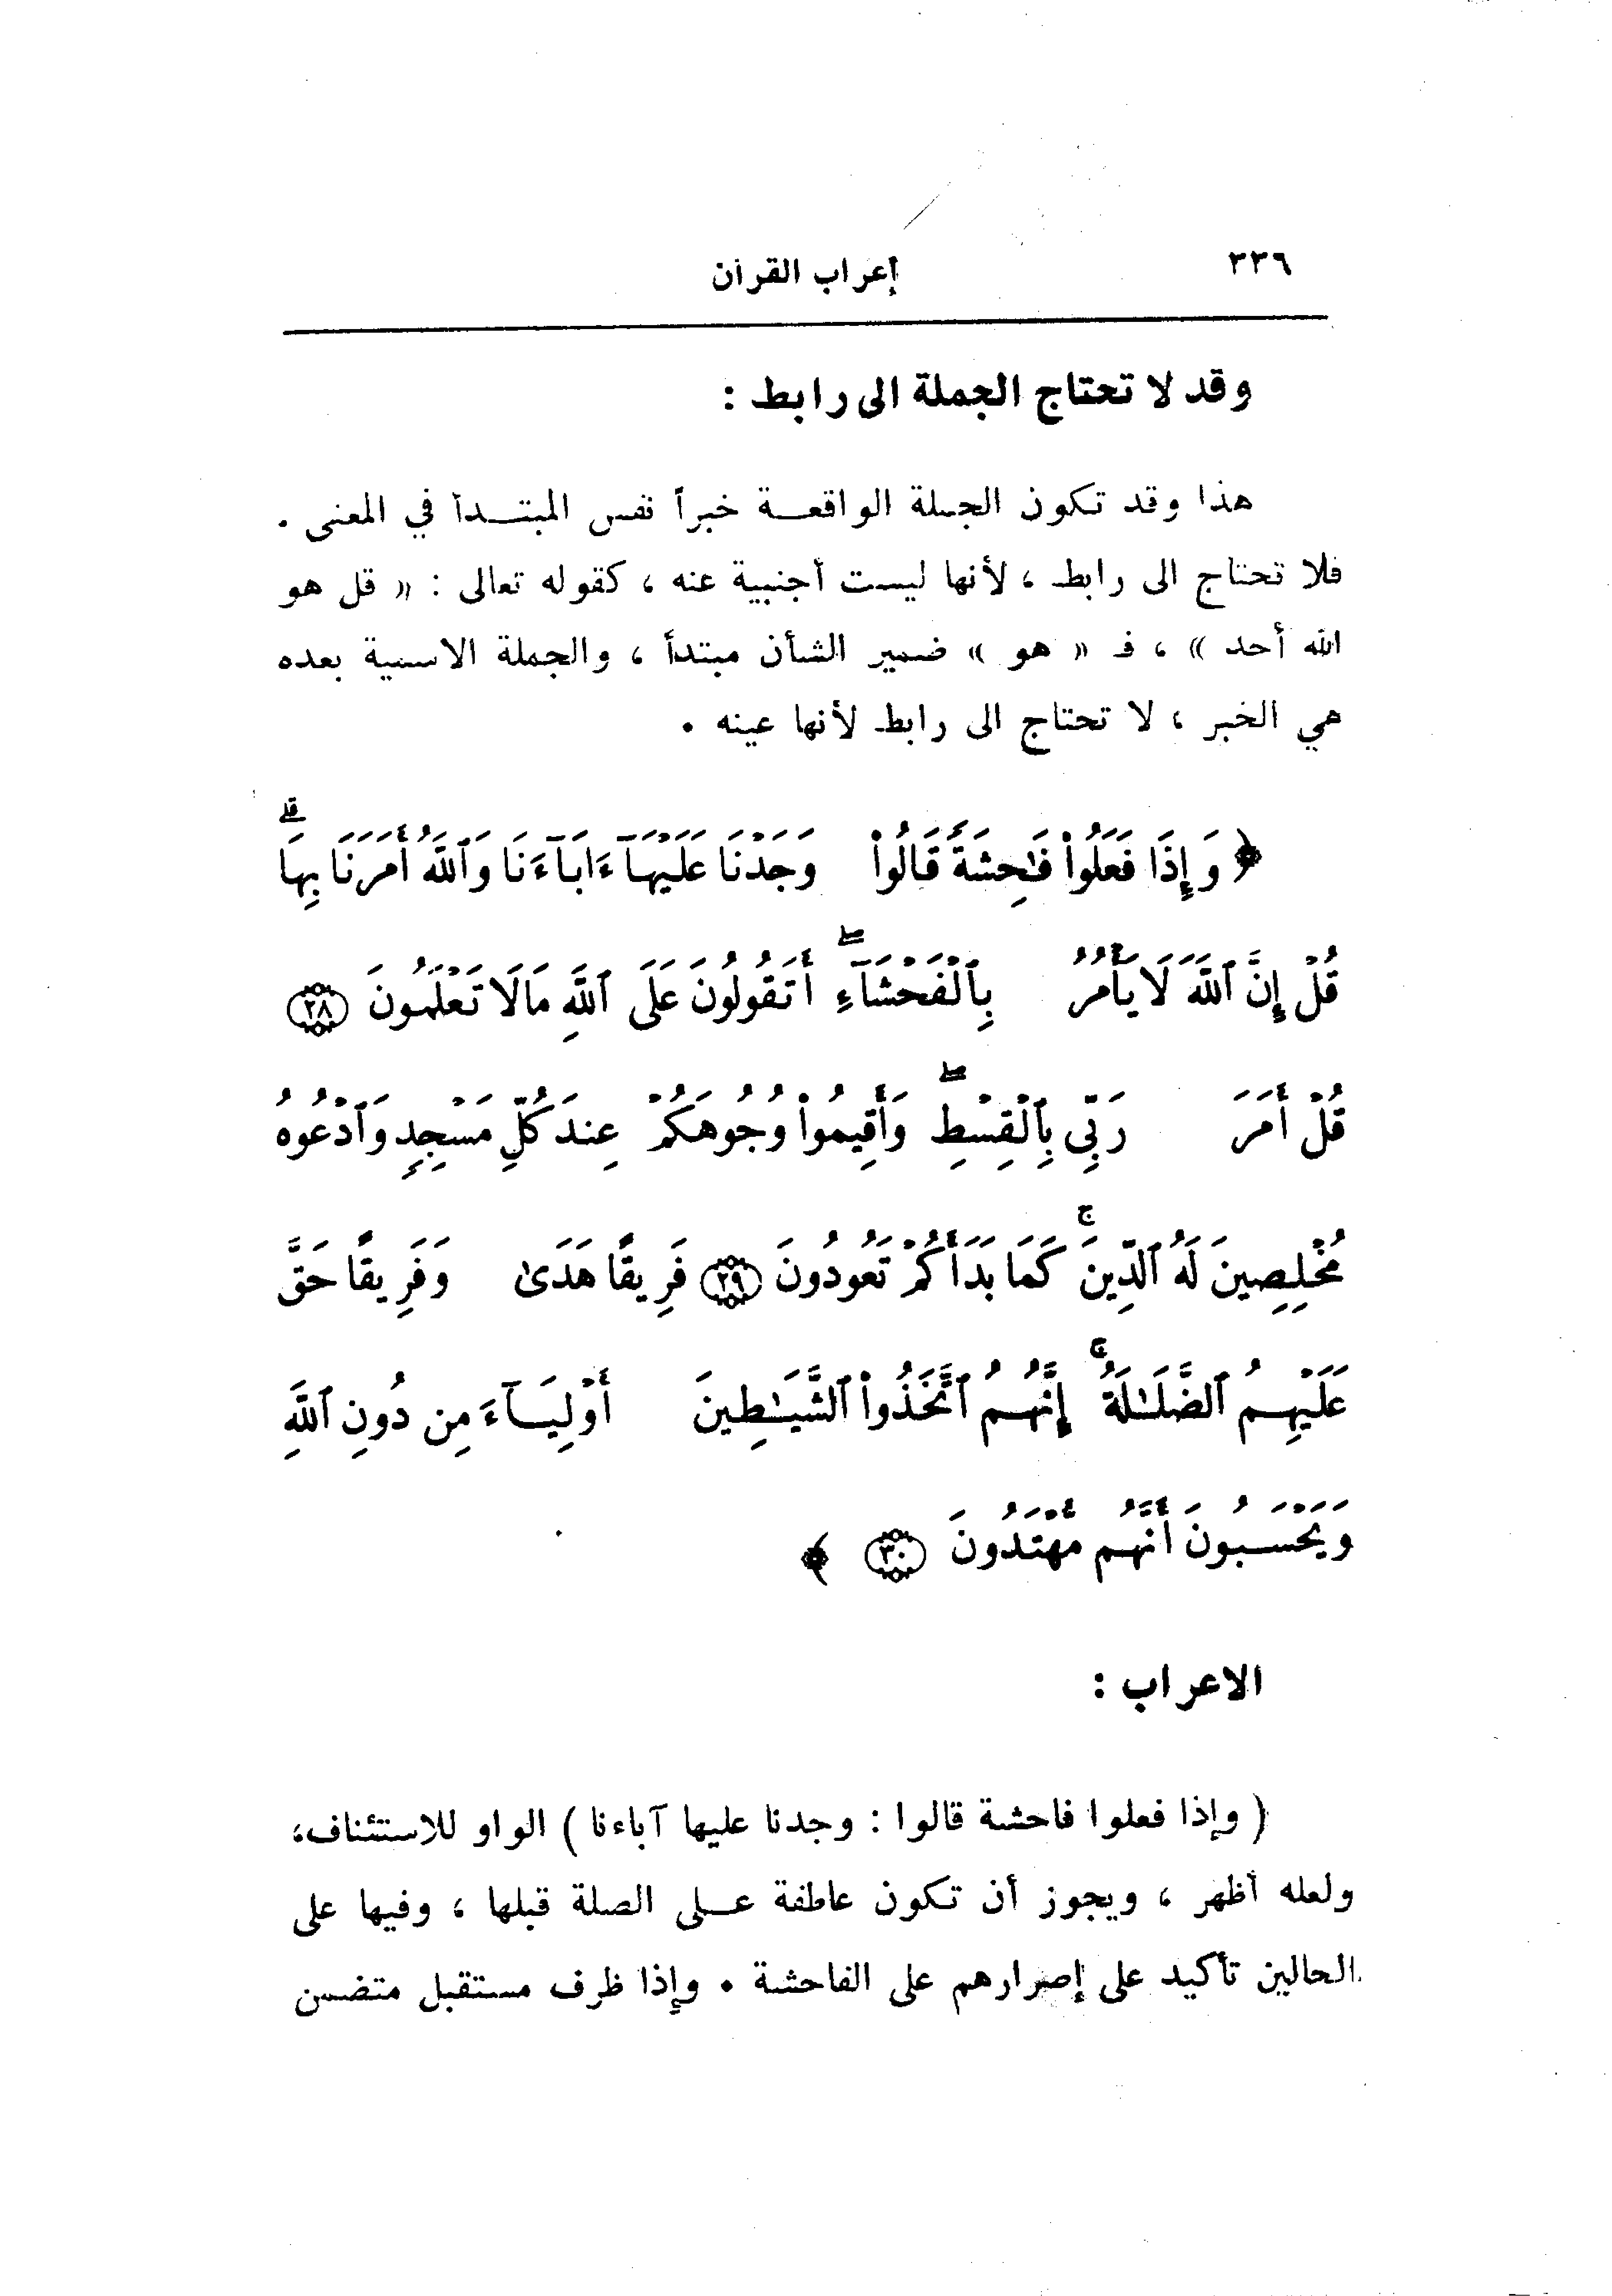 ٣٣٦
إعراب القرآن
وقد لا تحتاج الجملة الى رابط :
هذا وقد تكون الجملة الواقعة خبراً نفس المبتدأ في المعنى .
فلا تحتاج الى رابط ، لأنها ليست أجنبية عنه ، كقوله تعالى : « قل هو
الله أحد » ، فـ « هو » ضمير الشأن مبتدأ ، والجملة الاسمية بعده
هي الخبر ، لا تحتاج الى رابط لأنها عينه .
﴿ وَإِذَا فَعَلُوا۟ فَـٰحِشَةً قَالُوا۟ وَجَدْنَا عَلَيْهَآ ءَابَآءَنَا وَٱللَّهُ أَمَرَنَا بِهَا ۗ
قُلْ إِنَّ ٱللَّهَ لَا يَأْمُرُ بِٱلْفَحْشَآءِ ۖ أَتَقُولُونَ عَلَى ٱللَّهِ مَالَا تَعْلَمُونَ ٢٨
قُلْ أَمَرَ رَبِّى بِٱلْقِسْطِ ۖ وَأَقِيمُوا۟ وُجُوهَكُمْ عِندَ كُلِّ مَسْجِدٍ وَٱدْعُوهُ
مُخْلِصِينَ لَهُ ٱلدِّينَ ۚ كَمَا بَدَأَكُمْ تَعُودُونَ ٢٩ فَرِيقًا هَدَىٰ وَفَرِيقًا حَقَّ
عَلَيْهِمُ ٱلضَّلَـٰلَةُ ۚ إِنَّهُمُ ٱتَّخَذُوا۟ ٱلشَّيَـٰطِينَ أَوْلِيَآءَ مِن دُونِ ٱللَّهِ
وَيَحْسَبُونَ أَنَّهُم مُّهْتَدُونَ ٣٠ ﴾
الاعراب :
( وإذا فعلوا فاحشة قالوا : وجدنا عليها آباءنا ) الواو للاستئناف،
ولعله أظهر ، ويجوز أن تكون عاطفة على الصلة قبلها ، وفيها على
الحالين تأكيد على إصرارهم على الفاحشة . وإذا ظرف مستقبل متضمن